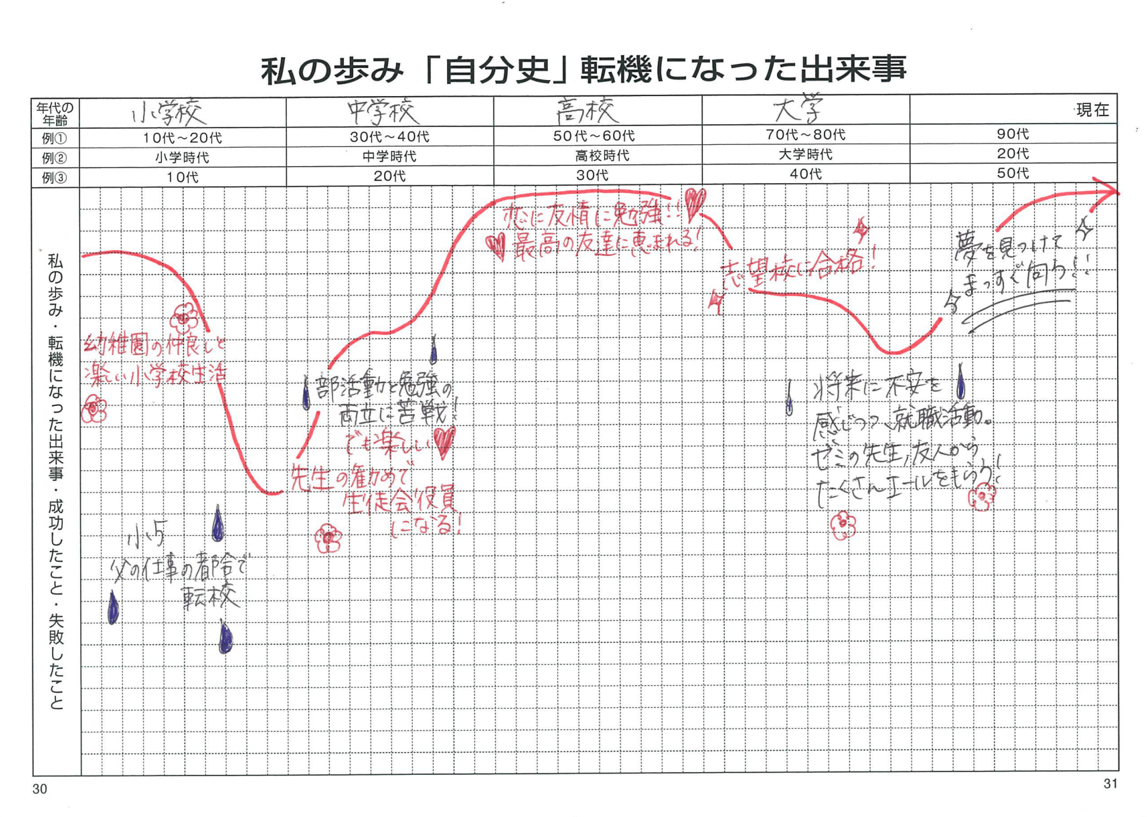 私の歩み「自分史」転機になった出来事
年代の年齢 小学校 中学校 高校 大学 現在
例① 10代～20代 30代～40代 50代～60代 70代～80代 90代
例② 小学時代 中学時代 高校時代 大学時代 20代
例③ 10代 20代 30代 40代 50代
私の歩み・転機になった出来事・成功したこと・失敗したこと
幼稚園の仲良しと
楽しい小学校生活
小5
父の仕事の都合で
転校
部活動と勉強の
両立に苦戦!
でも楽しい
先生の勧めで
生徒会役員
になる!
恋に友情に勉強!!
最高の友達に恵まれる!
志望校に合格!
将来に不安を
感じつつ、就職活動。
ゼミの先生、友人から
たくさんエールをもらう!
夢を見つけて
まっすぐ向う!!
30
31